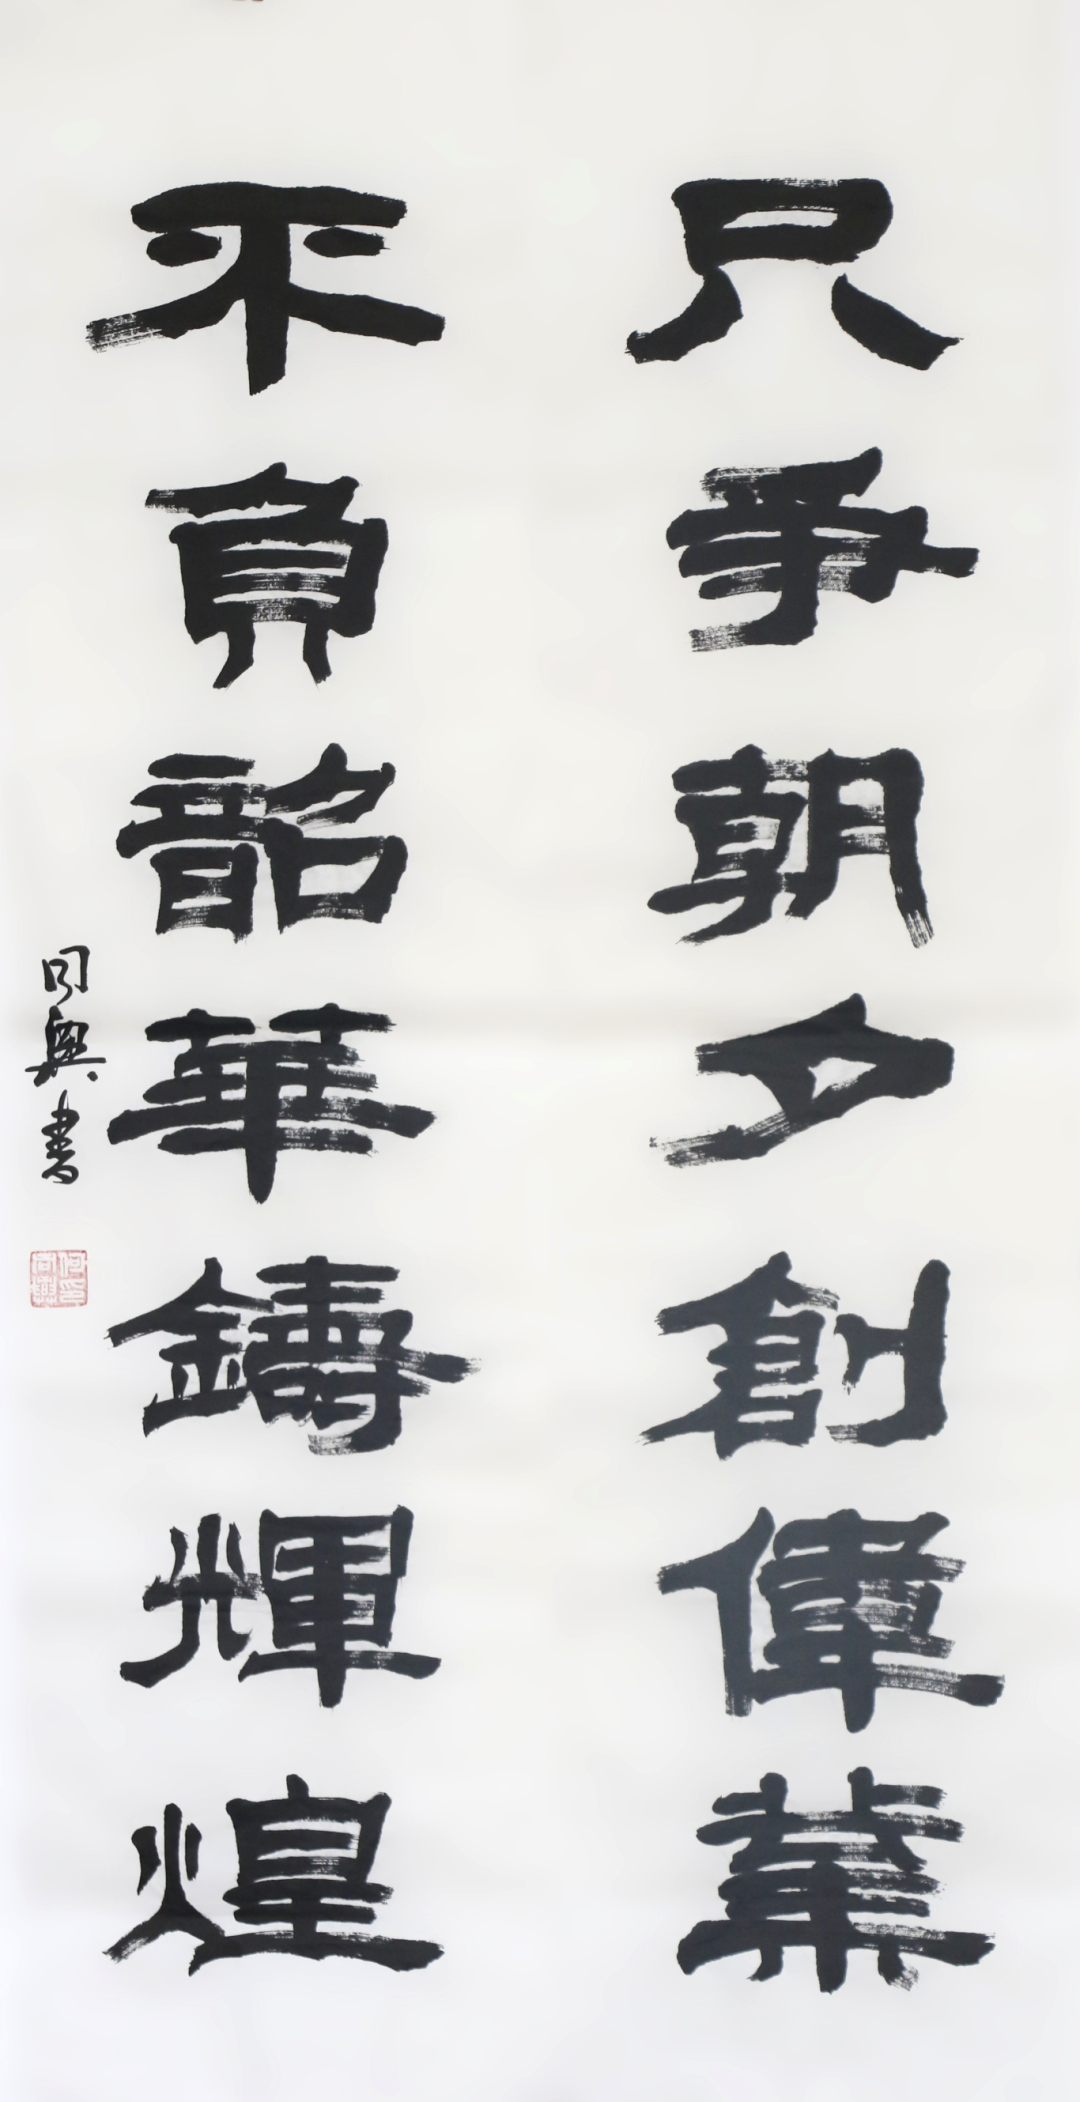 只爭朝夕創偉業
不負韶華鑄輝煌
同興書